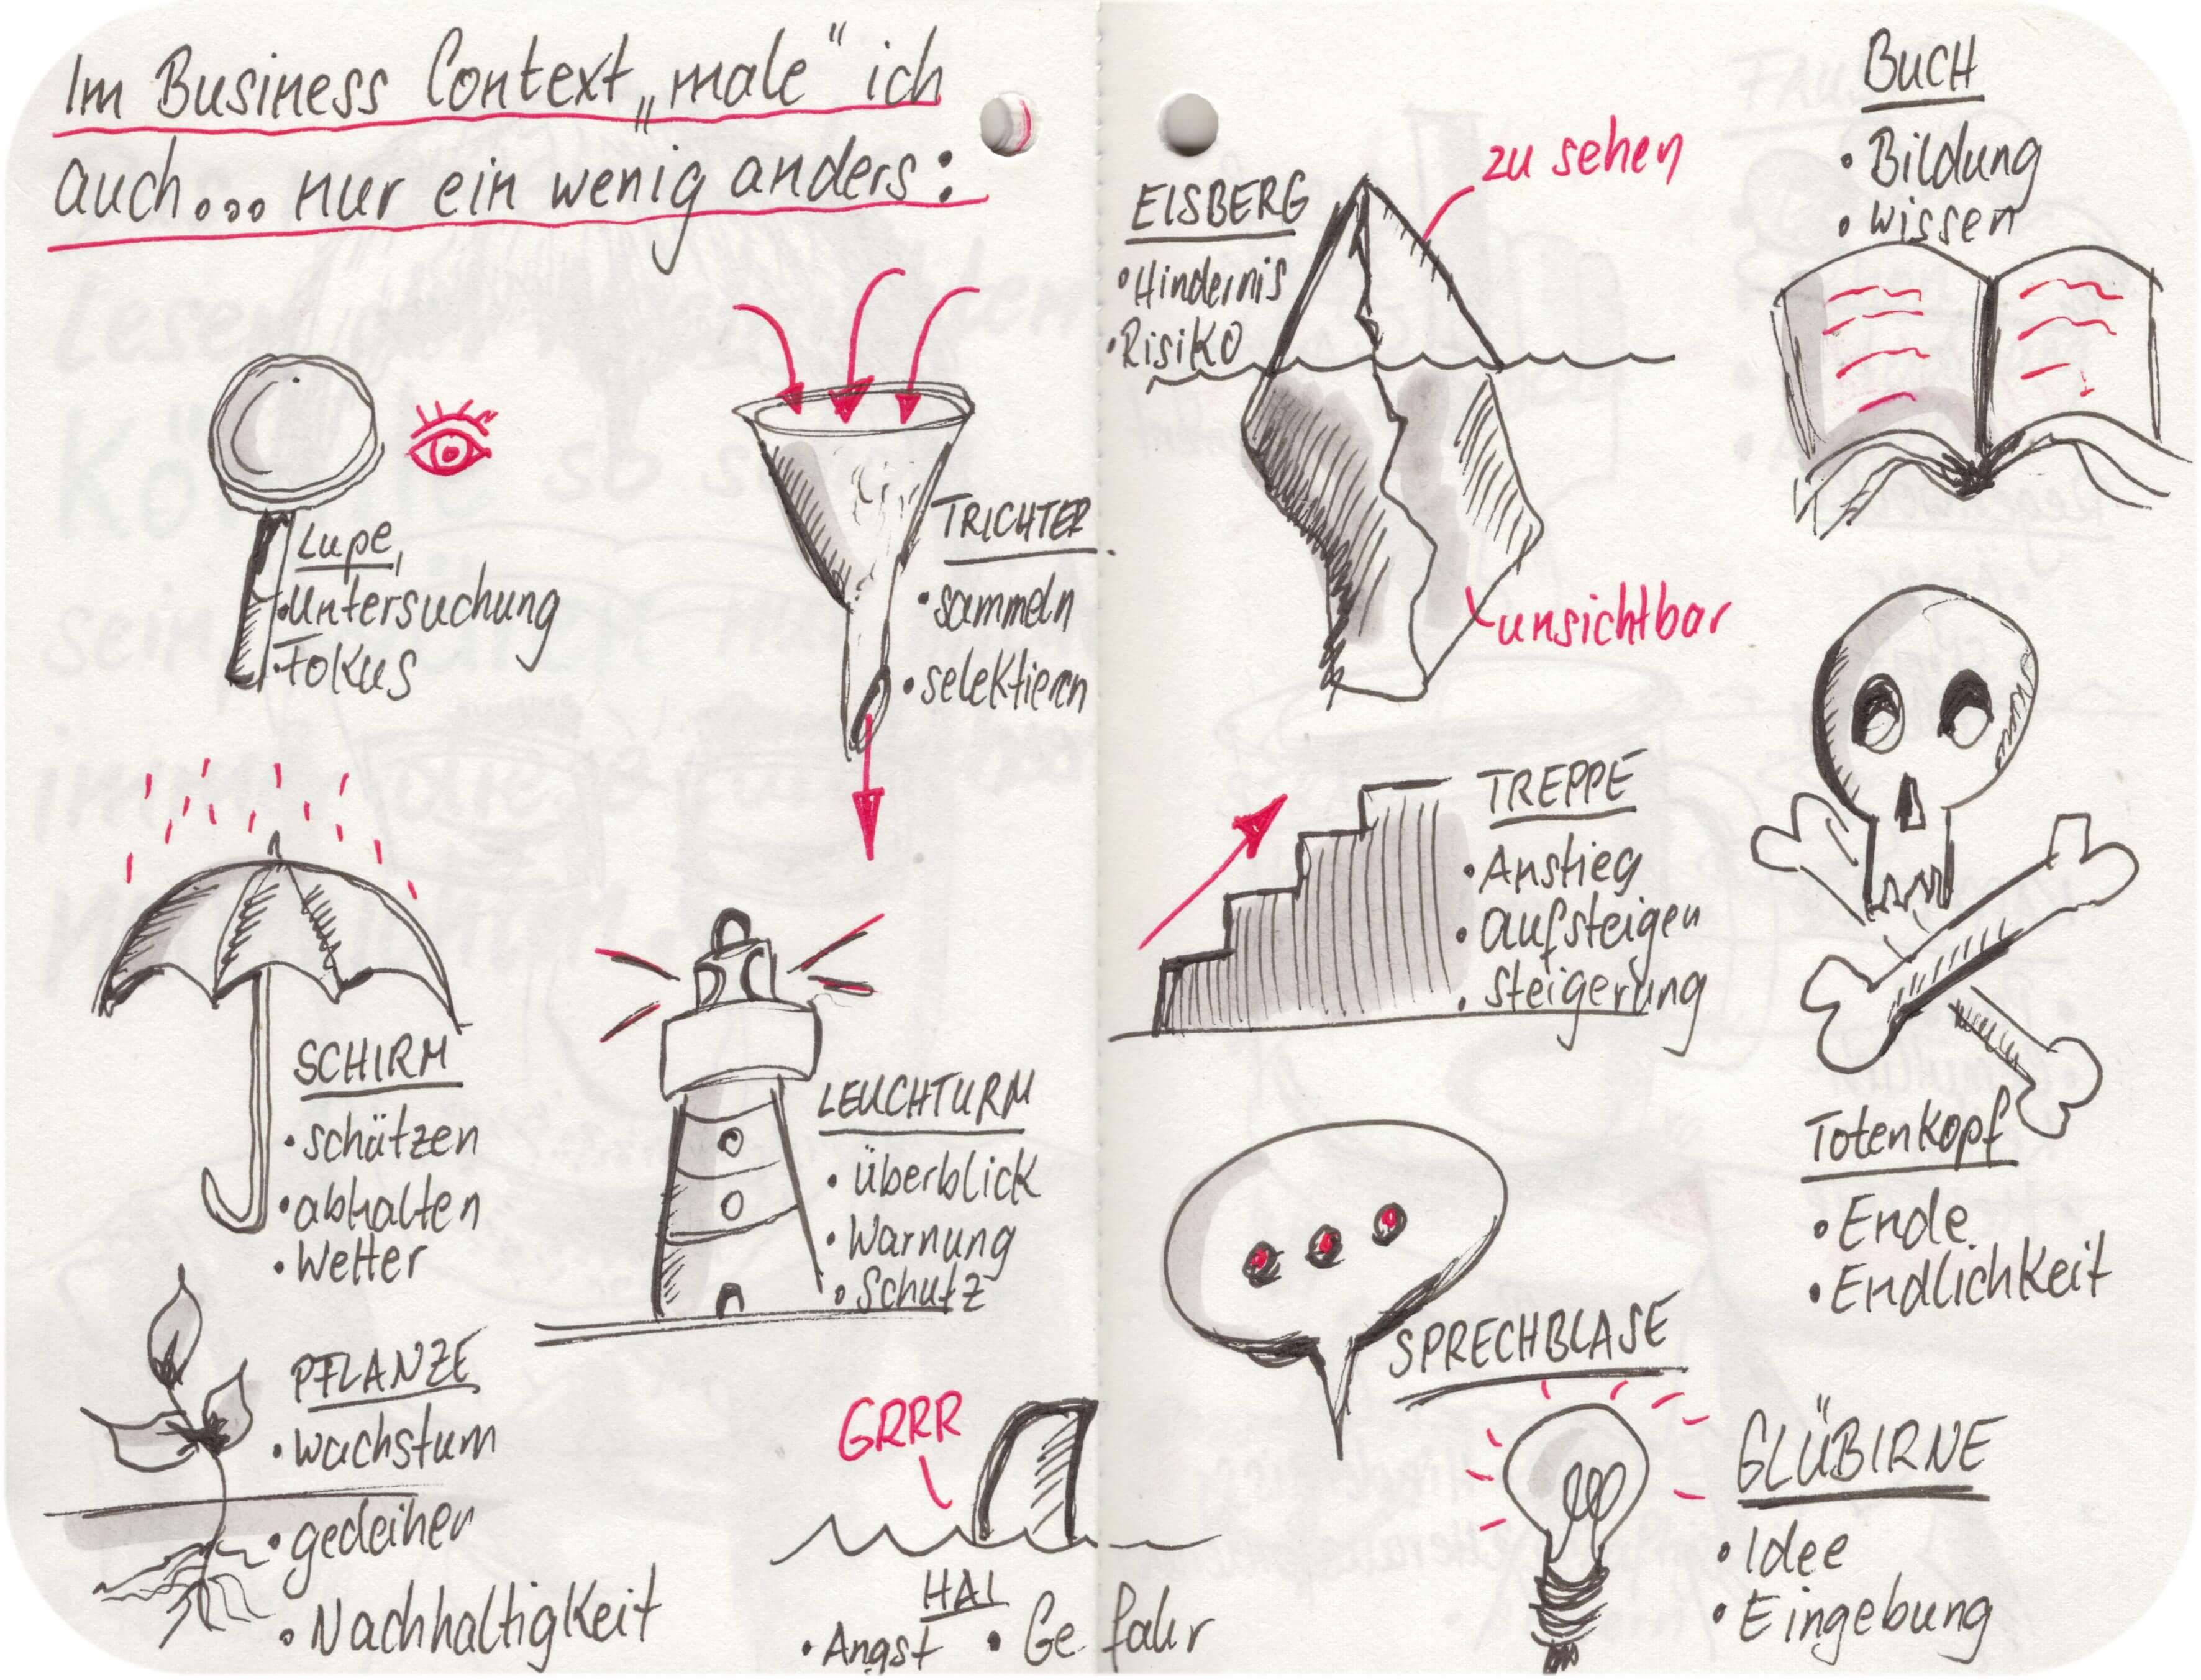 Im Business Context „male" ich
auch... nur ein wenig anders:
Lupe,
• Untersuchung
• Fokus
TRICHTER
• sammeln
• selektieren
SCHIRM
• schützen
• abhalten
• Wetter
LEUCHTURM
• Überblick
• Warnung
• Schutz
PFLANZE
• Wachstum
• gedeihen
• Nachhaltigkeit
GRRR
HAI
• Angst • Gefahr
EISBERG
• Hindernis
• Risiko
zu sehen
unsichtbar
BUCH
• Bildung
• Wissen
TREPPE
• Anstieg
• aufsteigen
• Steigerung
Totenkopf
• Ende
• Endlichkeit
SPRECHBLASE
GLÜBIRNE
• Idee
• Eingebung